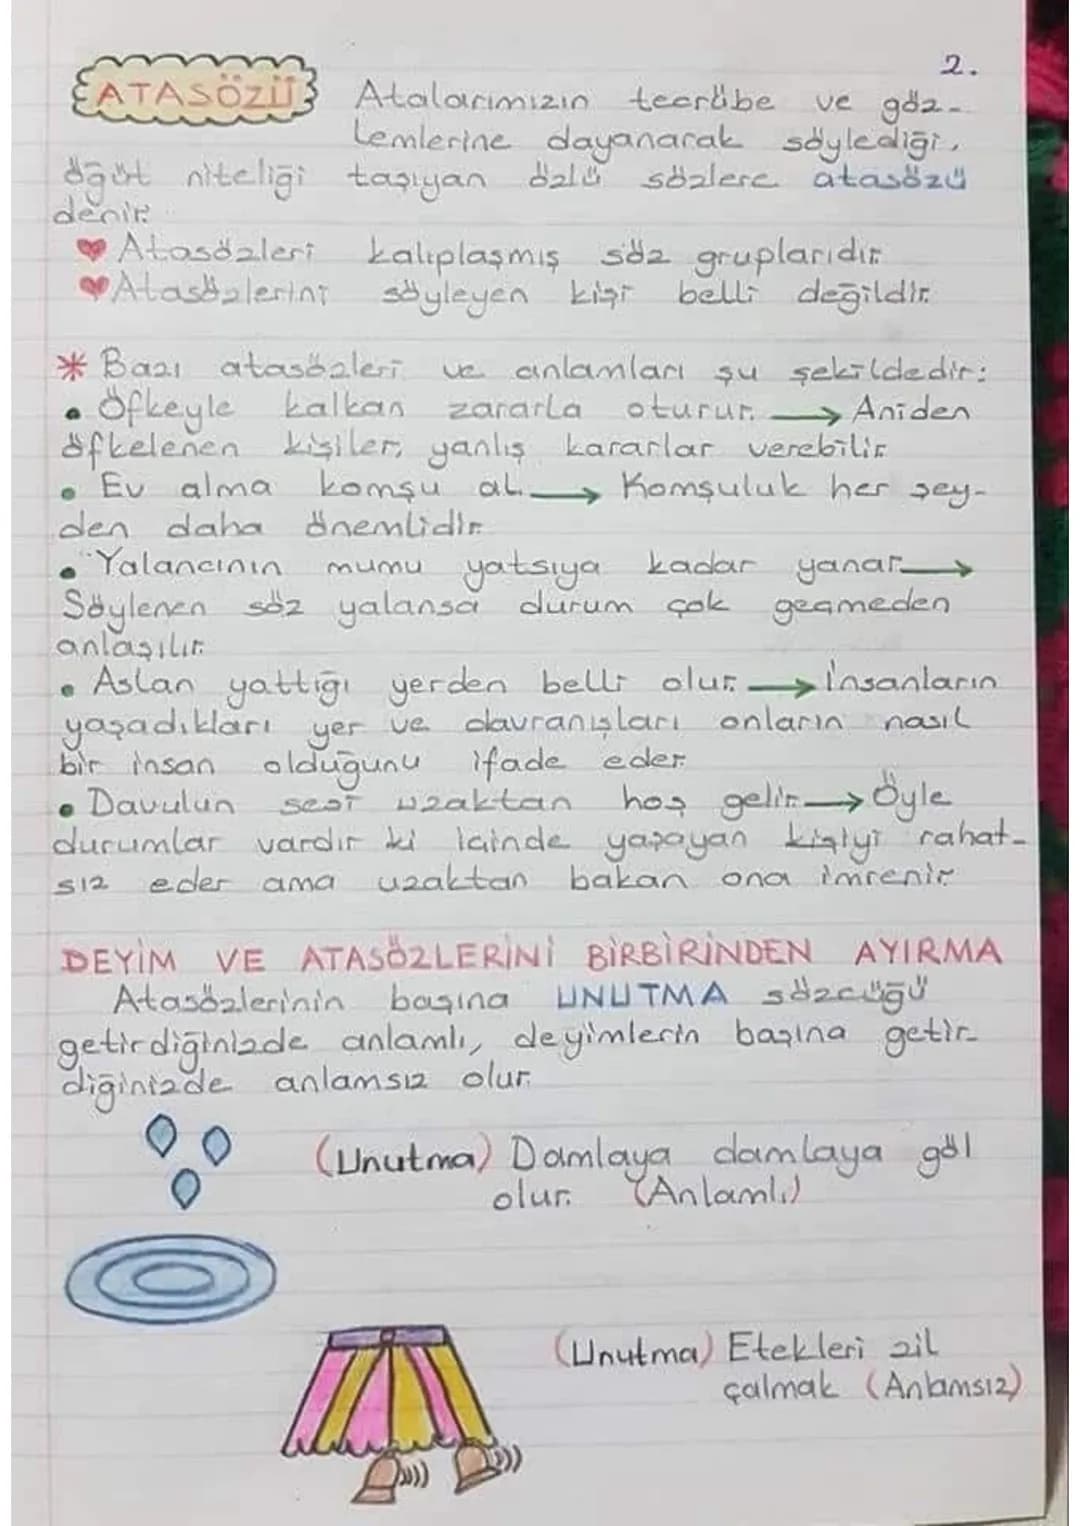 2.
ATASÖZÜ Atalarımızın tecrübe ve göz-
lemlerine dayanarak söylediği,
öğüt niteliği taşıyan özlü sözlere atasözü
denir.
Atasözleri kalıplaşmış söz gruplarıdır.
Atasözlerini söyleyen kişi belli değildir.
* Bazı atasözleri ve anlamları şu şekildedir:
• Öfkeyle kalkan zararla oturur. → Aniden
öfkelenen kişiler, yanlış kararlar verebilir.
• Ev alma komşu al. → Komşuluk her şey-
den daha önemlidir.
• Yalancının mumu yatsıya kadar yanar. →
Söylenen söz yalansa durum çok geçmeden
anlaşılır.
• Aslan yattığı yerden belli olur. → İnsanların
yaşadıkları yer ve davranışları onların nasıl
bir insan olduğunu ifade eder.
• Davulun sesi uzaktan hoş gelir. → Öyle
durumlar vardır ki içinde yaşayan kişiyi rahat-
sız eder ama uzaktan bakan ona imrenir.
DEYİM VE ATASÖZLERİNİ BİRBİRİNDEN AYIRMA
Atasözlerinin başına UNUTMA sözcüğü
getirdiğinizde anlamlı, deyimlerin başına getir-
diğinizde anlamsız olur.
(Unutma) Damlaya damlaya göl
olur. (Anlamlı)
(Unutma) Etekleri zil
çalmak (Anlamsız)